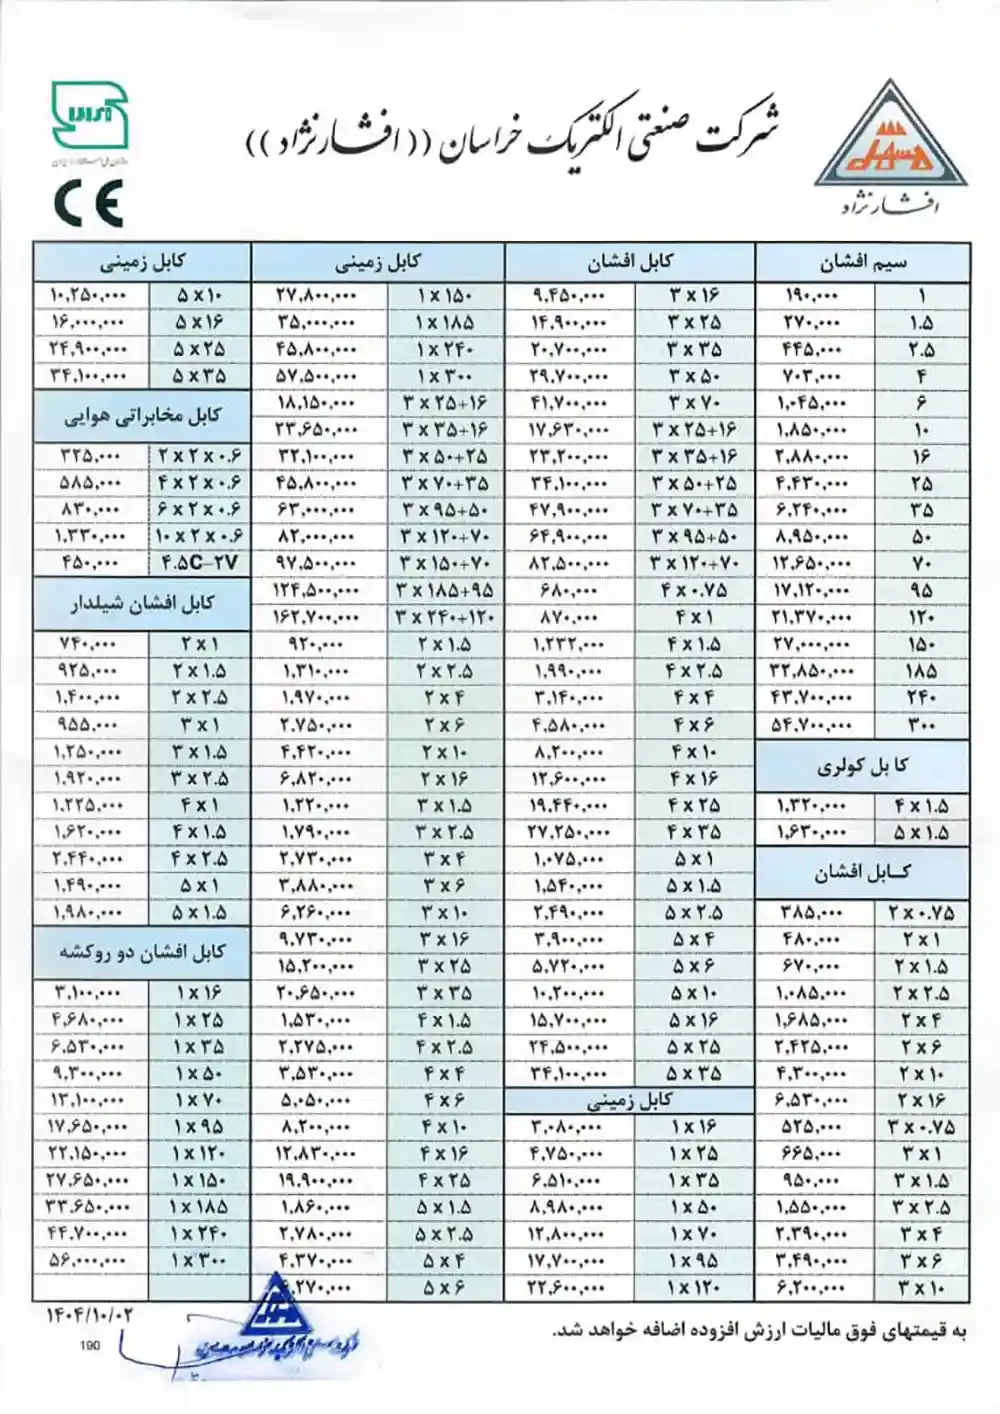 شرکت صنعتی الکتریک خراسان (( افشارنژاد ))
افشارنژاد
CE
سیم افشان
۱ ۱۹۰,۰۰۰
۱.۵ ۲۷۰,۰۰۰
۲.۵ ۴۴۵,۰۰۰
۴ ۷۰۳,۰۰۰
۶ ۱,۰۴۵,۰۰۰
۱۰ ۱,۸۵۰,۰۰۰
۱۶ ۲,۸۸۰,۰۰۰
۲۵ ۴,۴۳۰,۰۰۰
۳۵ ۶,۲۴۰,۰۰۰
۵۰ ۸,۹۵۰,۰۰۰
۷۰ ۱۲,۶۵۰,۰۰۰
۹۵ ۱۷,۱۲۰,۰۰۰
۱۲۰ ۲۱,۳۷۰,۰۰۰
۱۵۰ ۲۷,۰۰۰,۰۰۰
۱۸۵ ۳۲,۸۵۰,۰۰۰
۲۴۰ ۴۳,۷۰۰,۰۰۰
۳۰۰ ۵۴,۷۰۰,۰۰۰
کا بل کولری
۴ x ۱.۵ ۱,۳۲۰,۰۰۰
۵ x ۱.۵ ۱,۶۳۰,۰۰۰
کـابل افشان
۲ x ۰.۷۵ ۳۸۵,۰۰۰
۲ x ۱ ۴۸۰,۰۰۰
۲ x ۱.۵ ۶۷۰,۰۰۰
۲ x ۲.۵ ۱,۰۸۵,۰۰۰
۲ x ۴ ۱,۶۸۵,۰۰۰
۲ x ۶ ۲,۴۲۵,۰۰۰
۲ x ۱۰ ۴,۳۰۰,۰۰۰
۲ x ۱۶ ۶,۵۳۰,۰۰۰
۳ x ۰.۷۵ ۵۲۵,۰۰۰
۳ x ۱ ۶۶۵,۰۰۰
۳ x ۱.۵ ۹۵۰,۰۰۰
۳ x ۲.۵ ۱,۵۵۰,۰۰۰
۳ x ۴ ۲,۳۹۰,۰۰۰
۳ x ۶ ۳,۴۹۰,۰۰۰
۳ x ۱۰ ۶,۲۰۰,۰۰۰
کابل افشان
۳ x ۱۶ ۹,۴۵۰,۰۰۰
۳ x ۲۵ ۱۴,۹۰۰,۰۰۰
۳ x ۳۵ ۲۰,۷۰۰,۰۰۰
۳ x ۵۰ ۲۹,۷۰۰,۰۰۰
۳ x ۷۰ ۴۱,۷۰۰,۰۰۰
۳ x ۲۵+۱۶ ۱۷,۶۳۰,۰۰۰
۳ x ۳۵+۱۶ ۲۳,۲۰۰,۰۰۰
۳ x ۵۰+۲۵ ۳۴,۱۰۰,۰۰۰
۳ x ۷۰+۳۵ ۴۷,۹۰۰,۰۰۰
۳ x ۹۵+۵۰ ۶۴,۹۰۰,۰۰۰
۳ x ۱۲۰+۷۰ ۸۲,۵۰۰,۰۰۰
۴ x ۰.۷۵ ۶۸۰,۰۰۰
۴ x ۱ ۸۷۰,۰۰۰
۴ x ۱.۵ ۱,۲۳۲,۰۰۰
۴ x ۲.۵ ۱,۹۹۰,۰۰۰
۴ x ۴ ۳,۱۴۰,۰۰۰
۴ x ۶ ۴,۵۸۰,۰۰۰
۴ x ۱۰ ۸,۲۰۰,۰۰۰
۴ x ۱۶ ۱۲,۶۰۰,۰۰۰
۴ x ۲۵ ۱۹,۴۴۰,۰۰۰
۴ x ۳۵ ۲۷,۲۵۰,۰۰۰
۵ x ۱ ۱,۰۷۵,۰۰۰
۵ x ۱.۵ ۱,۵۴۰,۰۰۰
۵ x ۲.۵ ۲,۴۹۰,۰۰۰
۵ x ۴ ۳,۹۰۰,۰۰۰
۵ x ۶ ۵,۷۲۰,۰۰۰
۵ x ۱۰ ۱۰,۲۰۰,۰۰۰
۵ x ۱۶ ۱۵,۷۰۰,۰۰۰
۵ x ۲۵ ۲۴,۵۰۰,۰۰۰
۵ x ۳۵ ۳۴,۱۰۰,۰۰۰
کابل زمینی
۱ x ۱۶ ۳,۰۸۰,۰۰۰
۱ x ۲۵ ۴,۷۵۰,۰۰۰
۱ x ۳۵ ۶,۵۱۰,۰۰۰
۱ x ۵۰ ۸,۹۸۰,۰۰۰
۱ x ۷۰ ۱۲,۸۰۰,۰۰۰
۱ x ۹۵ ۱۷,۷۰۰,۰۰۰
۱ x ۱۲۰ ۲۲,۶۰۰,۰۰۰
کابل زمینی
۱ x ۱۵۰ ۲۷,۸۰۰,۰۰۰
۱ x ۱۸۵ ۳۵,۰۰۰,۰۰۰
۱ x ۲۴۰ ۴۵,۸۰۰,۰۰۰
۱ x ۳۰۰ ۵۷,۵۰۰,۰۰۰
۳ x ۲۵+۱۶ ۱۸,۱۵۰,۰۰۰
۳ x ۳۵+۱۶ ۲۳,۶۵۰,۰۰۰
۳ x ۵۰+۲۵ ۳۲,۱۰۰,۰۰۰
۳ x ۷۰+۳۵ ۴۵,۸۰۰,۰۰۰
۳ x ۹۵+۵۰ ۶۳,۰۰۰,۰۰۰
۳ x ۱۲۰+۷۰ ۸۲,۰۰۰,۰۰۰
۳ x ۱۵۰+۷۰ ۹۷,۵۰۰,۰۰۰
۳ x ۱۸۵+۹۵ ۱۲۴,۵۰۰,۰۰۰
۳ x ۲۴۰+۱۲۰ ۱۶۲,۷۰۰,۰۰۰
۲ x ۱.۵ ۹۲۰,۰۰۰
۲ x ۲.۵ ۱,۳۱۰,۰۰۰
۲ x ۴ ۱,۹۷۰,۰۰۰
۲ x ۶ ۲,۷۵۰,۰۰۰
۲ x ۱۰ ۴,۴۲۰,۰۰۰
۲ x ۱۶ ۶,۸۲۰,۰۰۰
۳ x ۱.۵ ۱,۲۲۰,۰۰۰
۳ x ۲.۵ ۱,۷۹۰,۰۰۰
۳ x ۴ ۲,۷۳۰,۰۰۰
۳ x ۶ ۳,۸۸۰,۰۰۰
۳ x ۱۰ ۶,۲۶۰,۰۰۰
۳ x ۱۶ ۹,۷۳۰,۰۰۰
۳ x ۲۵ ۱۵,۲۰۰,۰۰۰
۳ x ۳۵ ۲۰,۶۵۰,۰۰۰
۴ x ۱.۵ ۱,۵۳۰,۰۰۰
۴ x ۲.۵ ۲,۲۷۵,۰۰۰
۴ x ۴ ۳,۵۳۰,۰۰۰
۴ x ۶ ۵,۰۵۰,۰۰۰
۴ x ۱۰ ۸,۲۰۰,۰۰۰
۴ x ۱۶ ۱۲,۸۳۰,۰۰۰
۴ x ۲۵ ۱۹,۹۰۰,۰۰۰
۵ x ۱.۵ ۱,۸۶۰,۰۰۰
۵ x ۲.۵ ۲,۷۸۰,۰۰۰
۵ x ۴ ۴,۳۷۰,۰۰۰
۵ x ۶ ,۲۷۰,۰۰۰
کابل زمینی
۵ x ۱۰ ۱۰,۲۵۰,۰۰۰
۵ x ۱۶ ۱۶,۰۰۰,۰۰۰
۵ x ۲۵ ۲۴,۹۰۰,۰۰۰
۵ x ۳۵ ۳۴,۱۰۰,۰۰۰
کابل مخابراتی هوایی
۲ x ۲ x ۰.۶ ۳۲۵,۰۰۰
۴ x ۲ x ۰.۶ ۵۸۵,۰۰۰
۶ x ۲ x ۰.۶ ۸۳۰,۰۰۰
۱۰ x ۲ x ۰.۶ ۱,۳۳۰,۰۰۰
۴.۵C-۲V ۴۵۰,۰۰۰
کابل افشان شیلدار
۲ x ۱ ۷۴۰,۰۰۰
۲ x ۱.۵ ۹۲۵,۰۰۰
۲ x ۲.۵ ۱,۴۰۰,۰۰۰
۳ x ۱ ۹۵۵,۰۰۰
۳ x ۱.۵ ۱,۲۵۰,۰۰۰
۳ x ۲.۵ ۱,۹۲۰,۰۰۰
۴ x ۱ ۱,۲۲۵,۰۰۰
۴ x ۱.۵ ۱,۶۲۰,۰۰۰
۴ x ۲.۵ ۲,۴۴۰,۰۰۰
۵ x ۱ ۱,۴۹۰,۰۰۰
۵ x ۱.۵ ۱,۹۸۰,۰۰۰
کابل افشان دو روکشه
۱ x ۱۶ ۳,۱۰۰,۰۰۰
۱ x ۲۵ ۴,۶۸۰,۰۰۰
۱ x ۳۵ ۶,۵۳۰,۰۰۰
۱ x ۵۰ ۹,۳۰۰,۰۰۰
۱ x ۷۰ ۱۳,۱۰۰,۰۰۰
۱ x ۹۵ ۱۷,۶۵۰,۰۰۰
۱ x ۱۲۰ ۲۲,۱۵۰,۰۰۰
۱ x ۱۵۰ ۲۷,۶۵۰,۰۰۰
۱ x ۱۸۵ ۳۳,۶۵۰,۰۰۰
۱ x ۲۴۰ ۴۴,۷۰۰,۰۰۰
۱ x ۳۰۰ ۵۶,۰۰۰,۰۰۰
به قیمتهای فوق مالیات ارزش افزوده اضافه خواهد شد.
۱۴۰۴/۱۰/۰۲
190